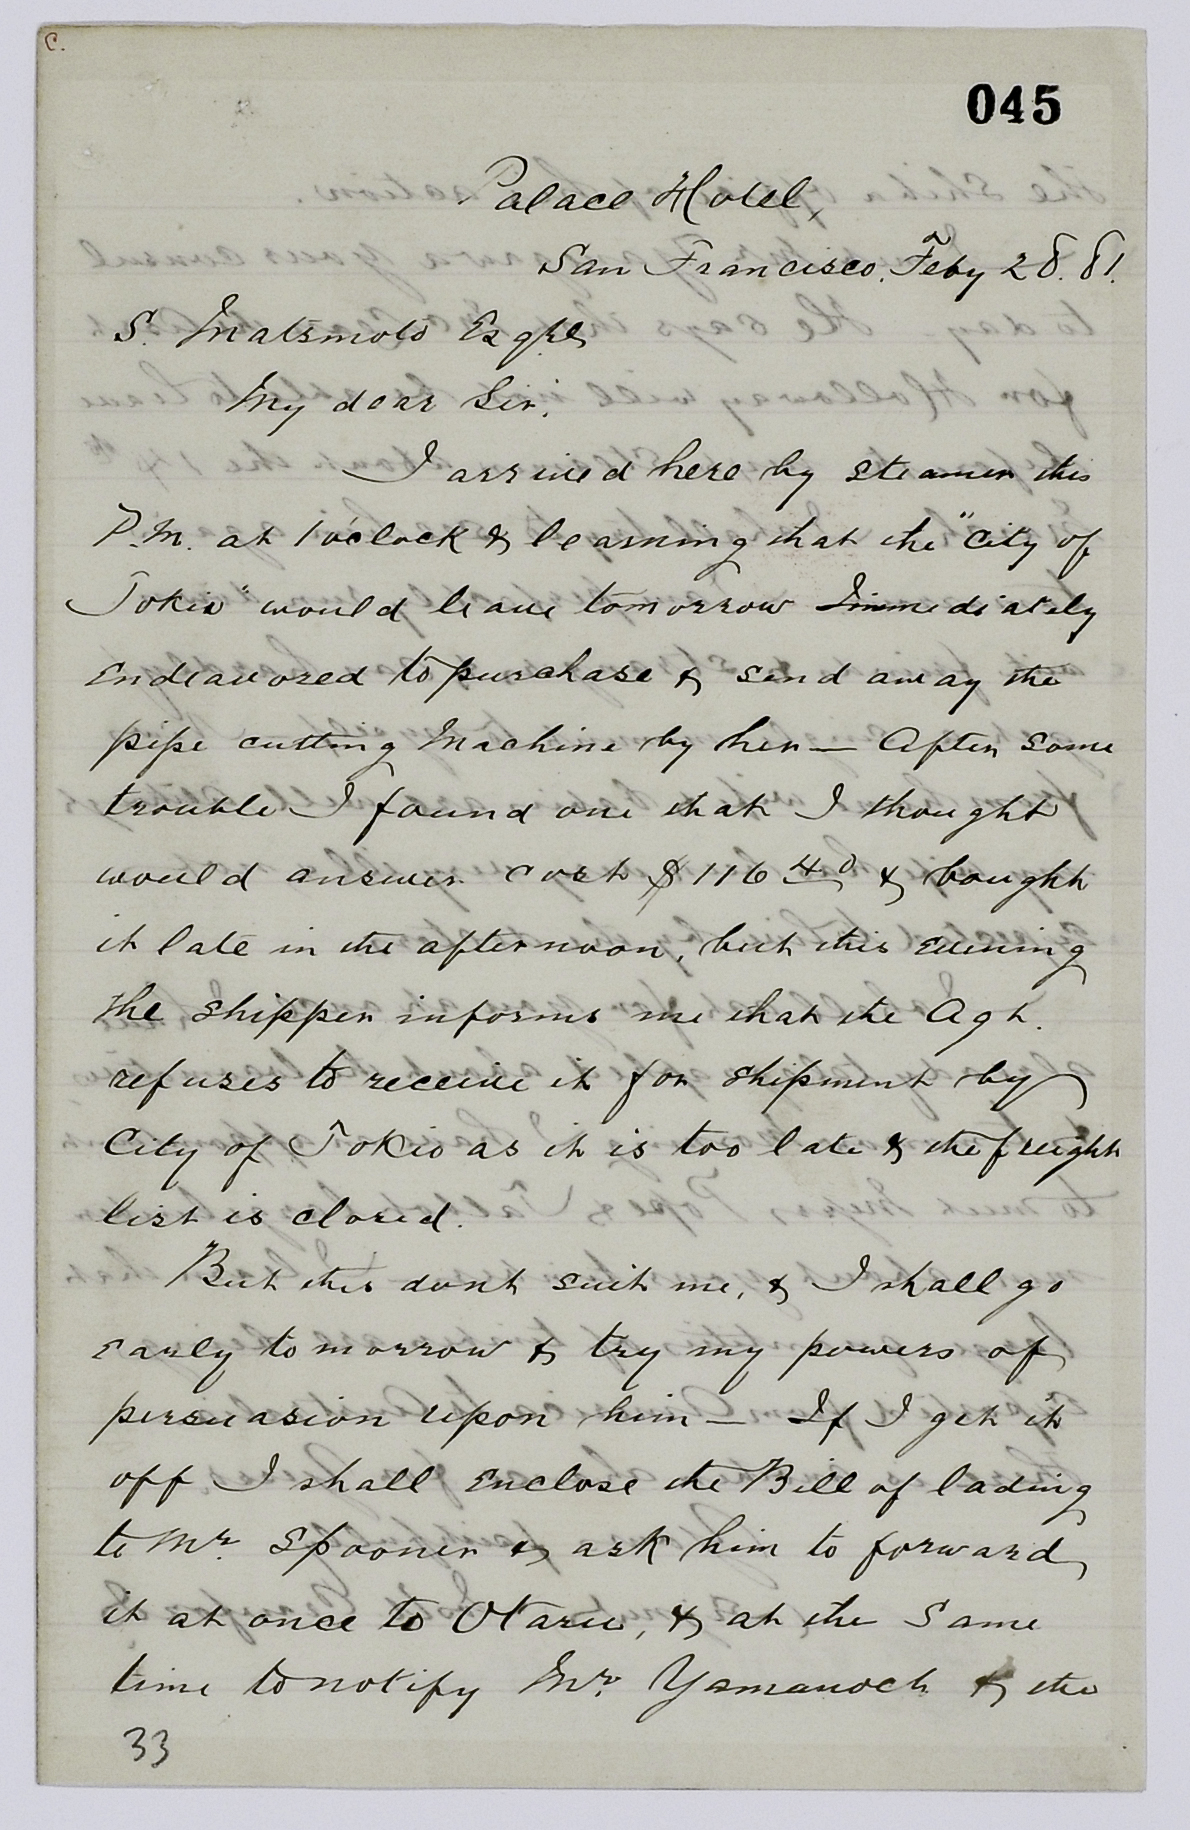 C.
045
Palace Hotel,
San Francisco, Feby 28. 81.
S. Matsmoto Esqre
My dear Sir,
I arrived here by steamer this
P.M. at 1 o'clock & learning that the "City of
Tokio" would leave tomorrow Immediately
Endeavored to purchase & send away the
pipe cutting Machine by her — After some
trouble I found one that I thought
would answer cost $116 40 & bought
it late in the afternoon, but this Evening
the shipper informs me that the Agt.
refuses to receive it for shipment by
City of Tokio as it is too late & the freight
list is closed.
But this dont suit me, & I shall go
Early tomorrow & try my powers of
persuasion upon him — If I get it
off I shall Enclose the Bill of lading
to Mr. Spooner & ask him to forward
it at once to Otaru, & at the same
time to notify Mr. Yamanoch & the
33